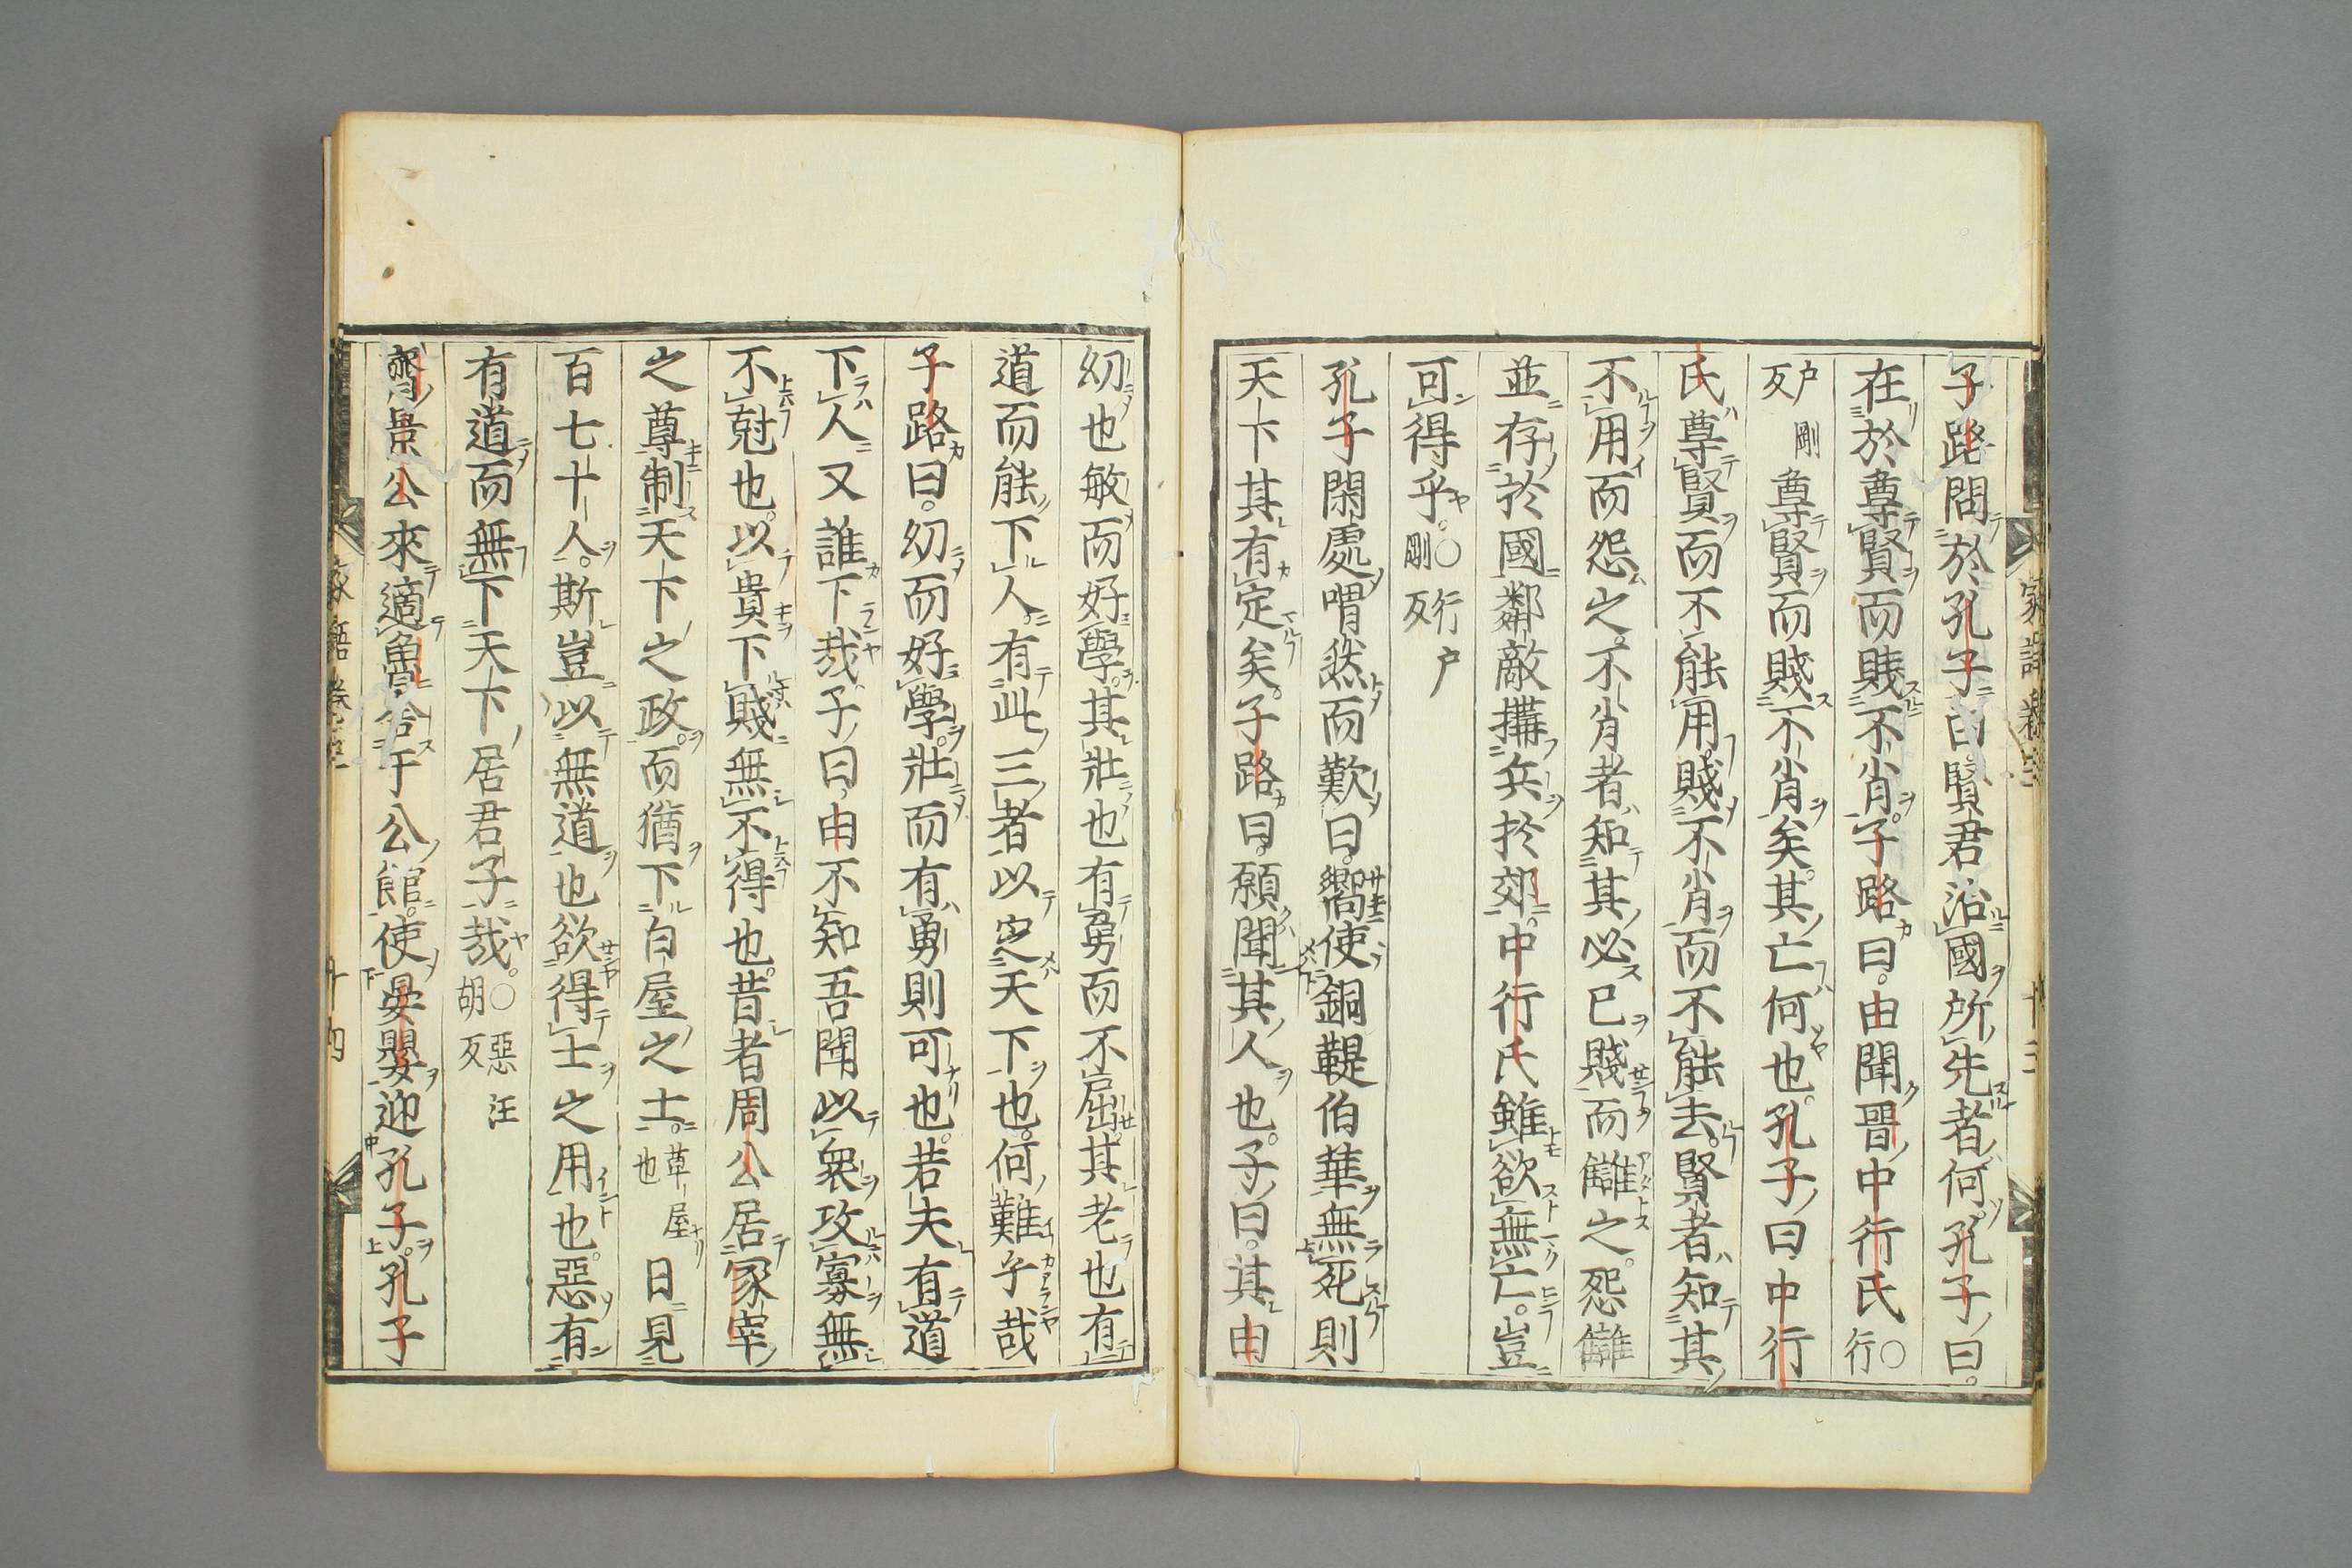 子路問於孔子曰。賢君治國所先者何。孔子曰。
在於尊賢而賤不肖。子路曰。由聞晋中行氏○行
户剛反尊賢而賤不肖矣。其亡何也。孔子曰中行
氏尊賢而不能用。賤不肖而不能去。賢者知其
不用而怨之。不肖者知其必已賤而讎之。怨讎
並存於國。鄰敵搆兵於郊。中行氏雖欲無亡。豈
可得乎。○行户剛反
孔子閑處喟然而歎曰。嚮使銅鞮伯華無死則
天下其有定矣。子路曰。願聞其人也。子曰。其
幼也敏而好學。其壯也有勇而不屈。其老也有
道而能下人。有此三者以定天下也。何難乎哉
子路曰。幼而好學。壯而有勇則可也。若夫有道
下人又誰下哉子曰由不知吾聞以衆攻寡無
不尅也。以貴下賤無不得也。昔者周公居冢宰
之尊制天下之政。而猶下白屋之士。草屋也日見
百七十人。斯豈以無道也欲得士之用也。惡有
有道而無下天下居君子哉。○惡汪胡反
齊景公來適魯舍于公館。使晏嬰迎孔子。孔子
家語卷三
十四